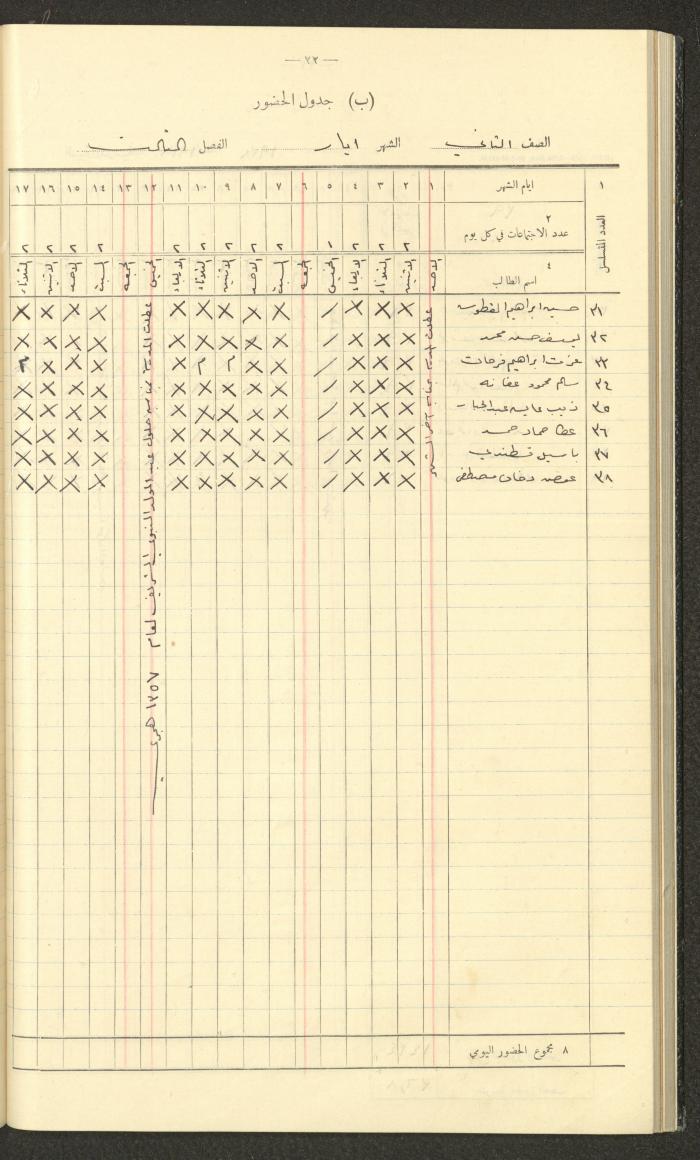 — ٢٢ —
(ب) جدول الحضور
الصف الثاني الشهر ايار الفصل الثالث
١ ايام الشهر ١ ٢ ٣ ٤ ٥ ٦ ٧ ٨ ٩ ١٠ ١١ ١٢ ١٣ ١٤ ١٥ ١٦ ١٧
العدد المتسلسل
٢ عدد الاجتماعات في كل يوم ٢ ٢ ٢ ١ ٢ ٢ ٢ ٢ ٢ ٢ ٢ ٢ ٢
٤ اسم الطالب الاحد الاثنين الثلاثاء الاربعاء الخميس الجمعة السبت الاحد الاثنين الثلاثاء الاربعاء الخميس الجمعة السبت الاحد الاثنين الثلاثاء
٣١ حسين ابراهيم X X X / X X X X X X X X X
٣٢ يوسف حسن محمد X X X / X X X X X X X X X
٣٣ عزت ابراهيم فرحات X X X / X X م م X X X X م
٣٤ سالم محمود عفانه X X X / X X X X X X X X X
٣٥ ذيب X X X / X X X X X X X X X
٣٦ عطا حماد حمد X X X / X X X X X X X X X
٣٧ باسيل قسطندي X X X / X X X X X X X X X
٣٨ عوض مصطفى X X X / X X X X X X X X X
عطلت المدرسة بمناسبة حلول عيد المولد النبوي الشريف لعام ١٣٥٧ هجري
٨ مجموع الحضور اليومي